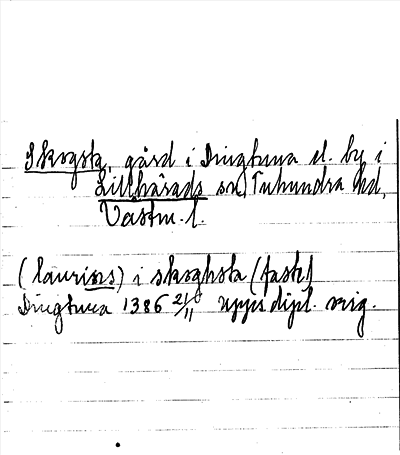 Skogsta, gård i Dingtuna el. by i
Lillhärads sn, Tuhundra hd,
Västm. l.
(laurins) i skoghsta (faste)
Dingtuna 1386 21/11 Upps dipl. orig.